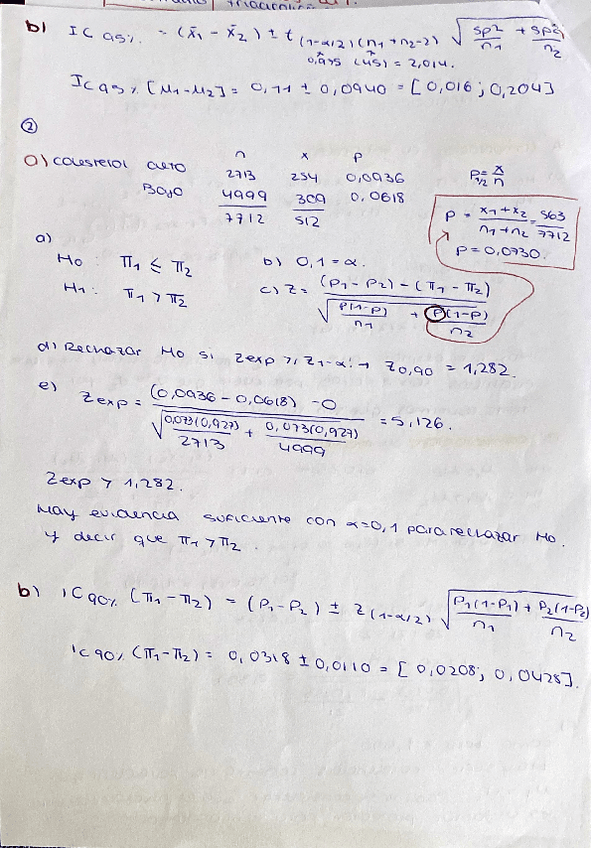 b) IC 95% = (x̄1 - x̄2) ± t (1-α/2)(n1+n2-2) √(sp²/n1 + sp²/n2)
0,975 (45) = 2,014.
IC 95% [μ1-μ2] = 0,11 ± 0,0940 = [0,016 ; 0,204]
②
a) colesterol n x p
alto 2713 254 0,0936 p = x/n
Bajo 4999 309 0,0618
7712 512
p = (x1+x2)/(n1+n2) = 563/7712
p = 0,0730.
a) b) 0,1 = α.
H0: π1 ≤ π2
H1: π1 > π2 c) Z = ((p1 - p2) - (π1 - π2)) / √(p(1-p)/n1 + p(1-p)/n2)
d) Rechazar H0 si Zexp > Z1-α → Z0,90 = 1,282.
e) Zexp = ((0,0936 - 0,0618) - 0) / √(0,073(0,927)/2713 + 0,073(0,927)/4999) = 5,126.
Zexp > 1,282.
Hay evidencia suficiente con α=0,1 para rechazar H0.
y decir que π1 > π2.
b) IC 90% (π1-π2) = (p1-p2) ± Z(1-α/2) √(p1(1-p1)/n1 + p2(1-p2)/n2)
IC 90% (π1-π2) = 0,0318 ± 0,0110 = [0,0208; 0,0428].